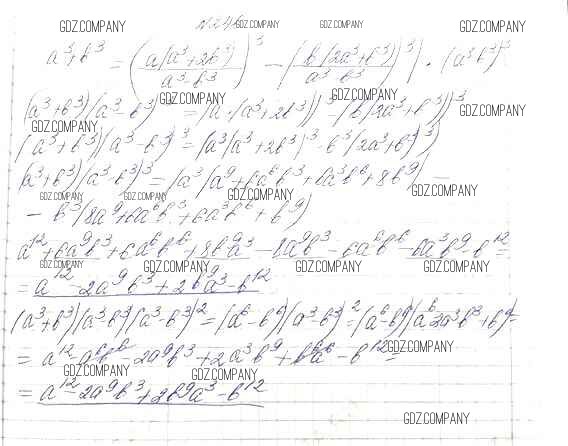 GDZ.COM​PANY GDZ.COMPANY GDZ.COMPANY GDZ.COMPANY
a³+b³ = (a(a³+2b³)/(a³-b³))³ - (b(2a³+b³)/(a³-b³))³ | · (a³-b³)³
GDZ.COMPANY GDZ.COMPANY
(a³+b³)(a³-b³)³ = (a·(a³+2b³))³ - (b(2a³+b³))³
GDZ.COMPANY GDZ.COMPANY
(a³+b³)(a³-b³)³ = (a³(a³+2b³)³ - b³(2a³+b³)³)
(a³+b³)(a³-b³)³ = (a³(a⁹+6a⁶b³+6a³b⁶+8b⁹) -
GDZ.COMPANY GDZ.COMPANY GDZ.COMPANY GDZ.COMPANY
- b³(8a⁹+6a⁶b³+6a³b⁶+b⁹)
a¹²+6a⁹b³+6a⁶b⁶+8b⁹a³-8a⁹b³-6a⁶b⁶-6a³b⁹-b¹² =
GDZ.COMPANY GDZ.COMPANY GDZ.COMPANY GDZ.COMPANY
= a¹²-2a⁹b³+2b⁹a³-b¹²
(a³+b³)(a³-b³)(a³-b³)² = (a⁶-b⁶)(a³-b³)² = (a⁶-b⁶)(a⁶-2a³b³+b⁶) =
= a¹²-a⁶b⁶-2a⁹b³+2a³b⁹+b⁶a⁶-b¹² =
GDZ.COMPANY GDZ.COMPANY GDZ.COMPANY
= a¹²-2a⁹b³+2b⁹a³-b¹²
GDZ.COMPANY